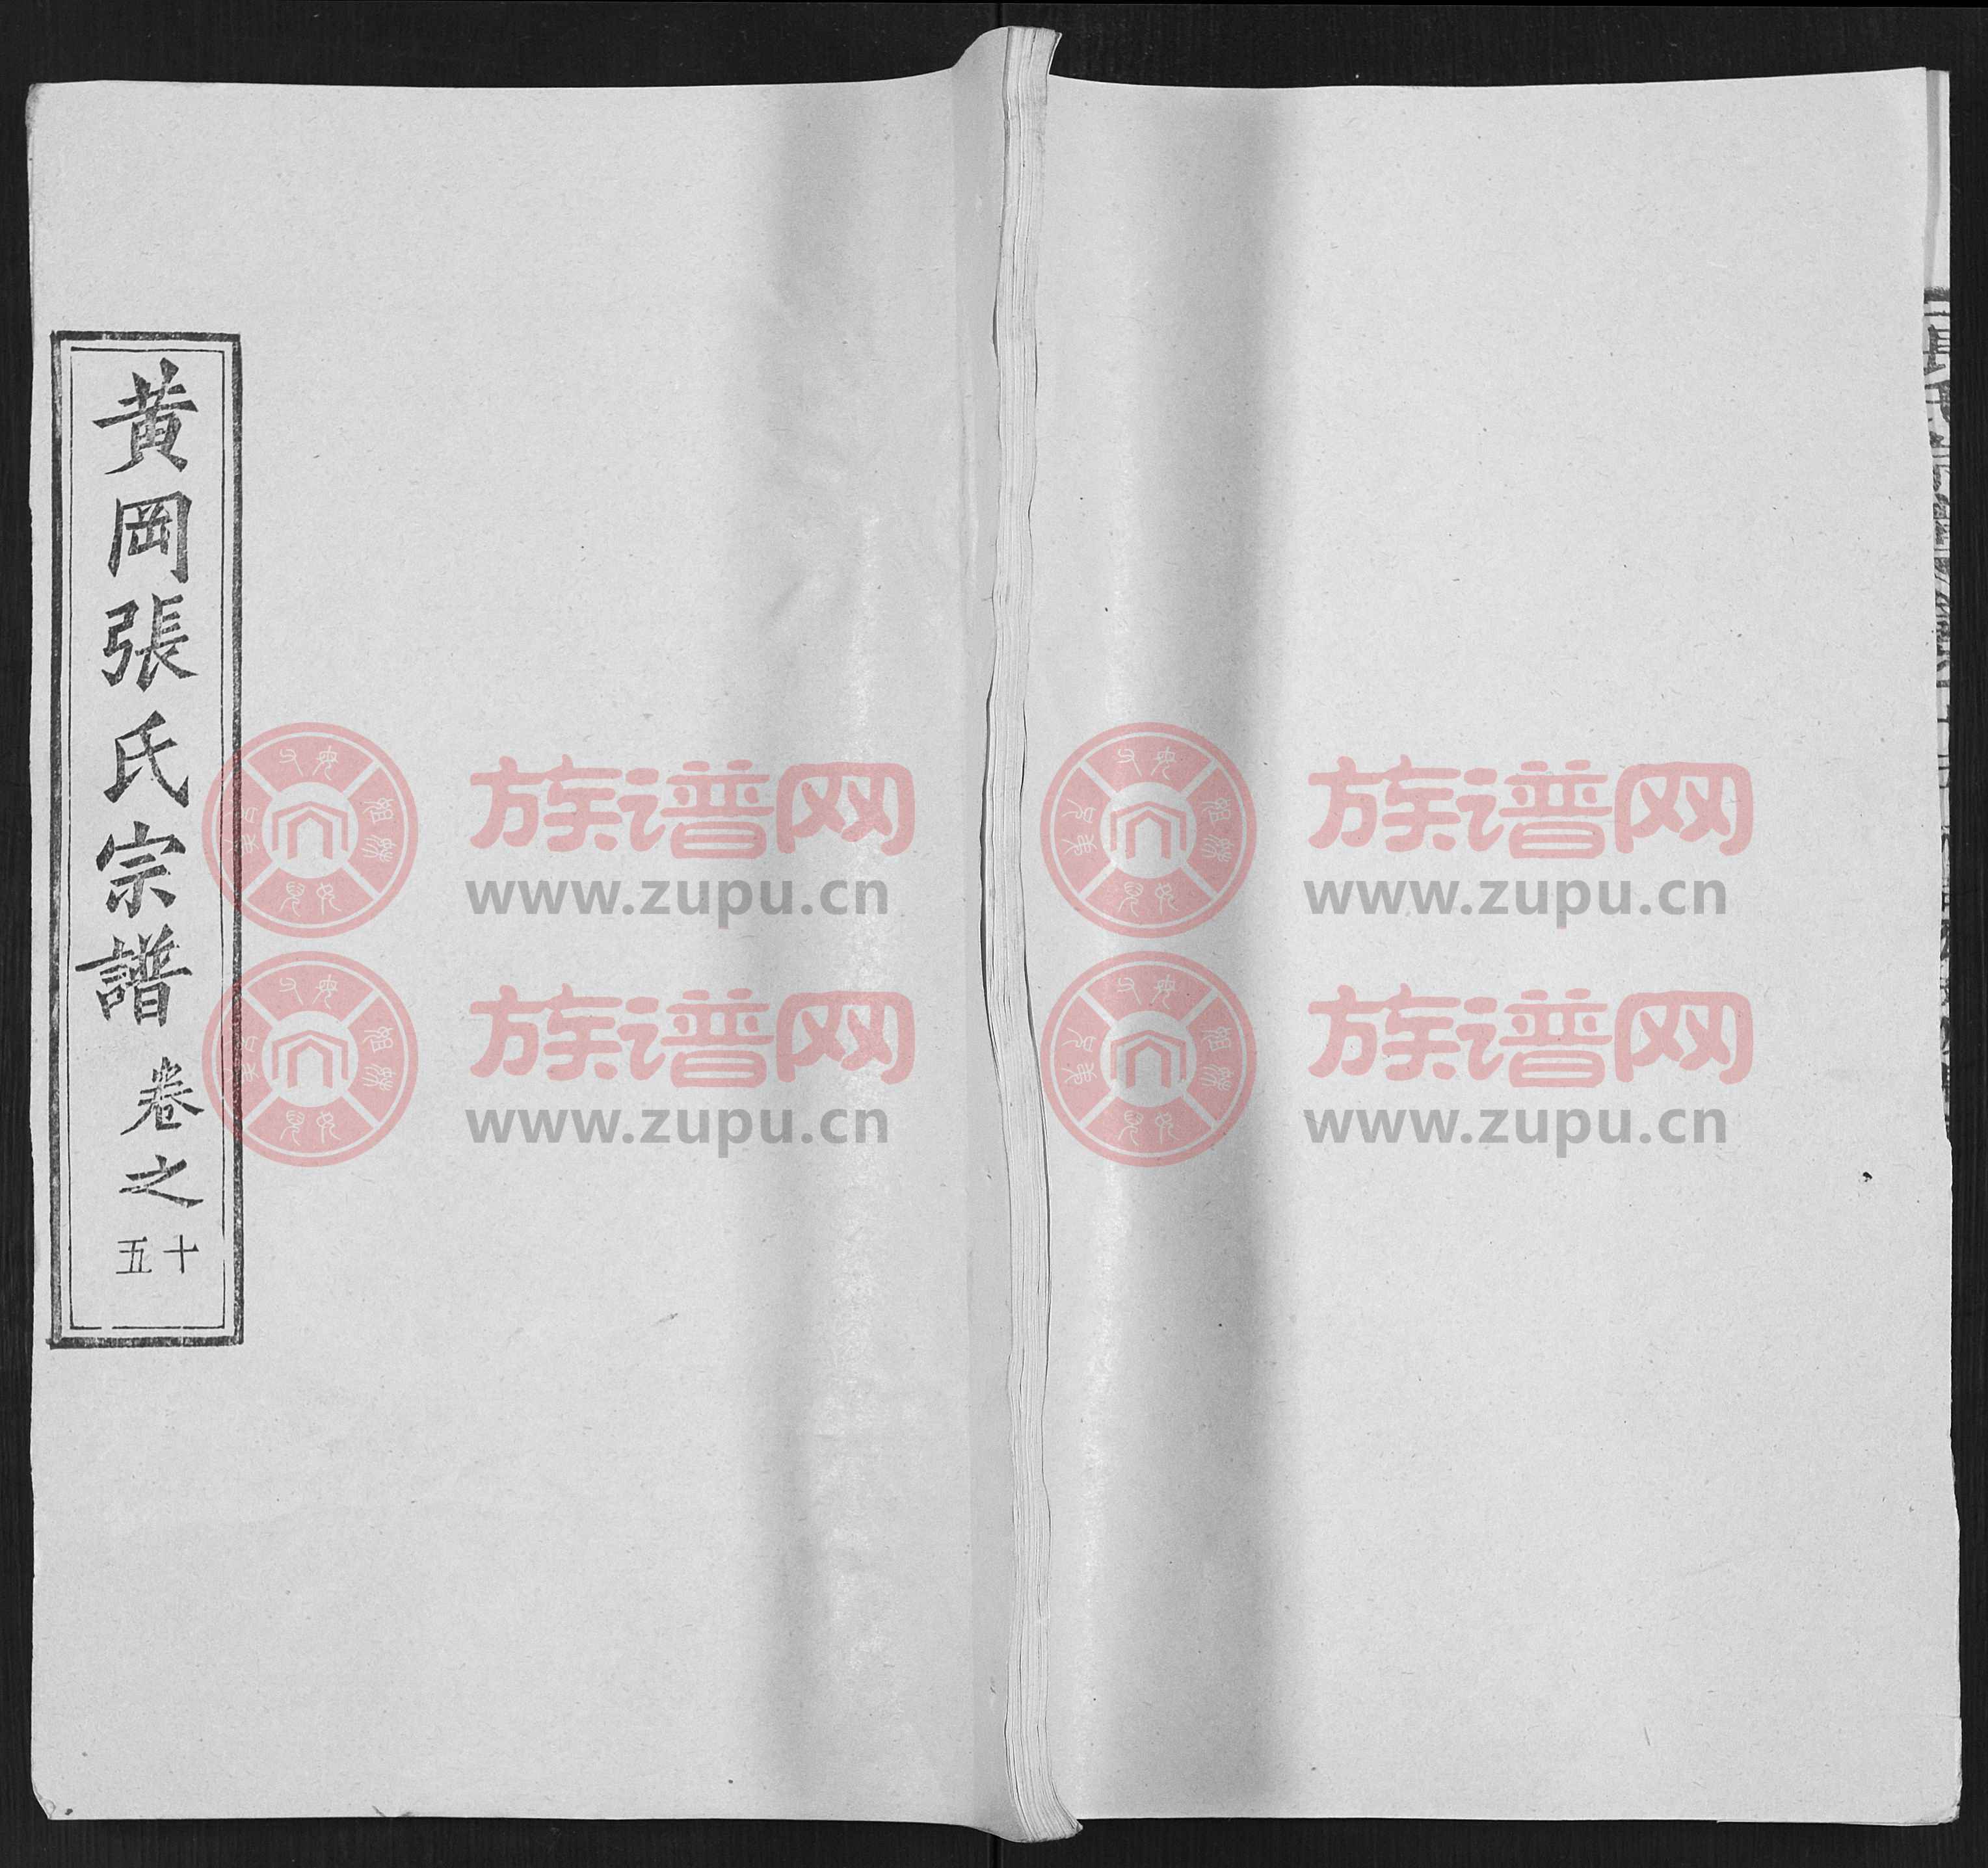 黄岡張氏宗譜
卷之
十五
族谱网
www.zupu.cn
族谱网
www.zupu.cn
族谱网
www.zupu.cn
族谱网
www.zupu.cn